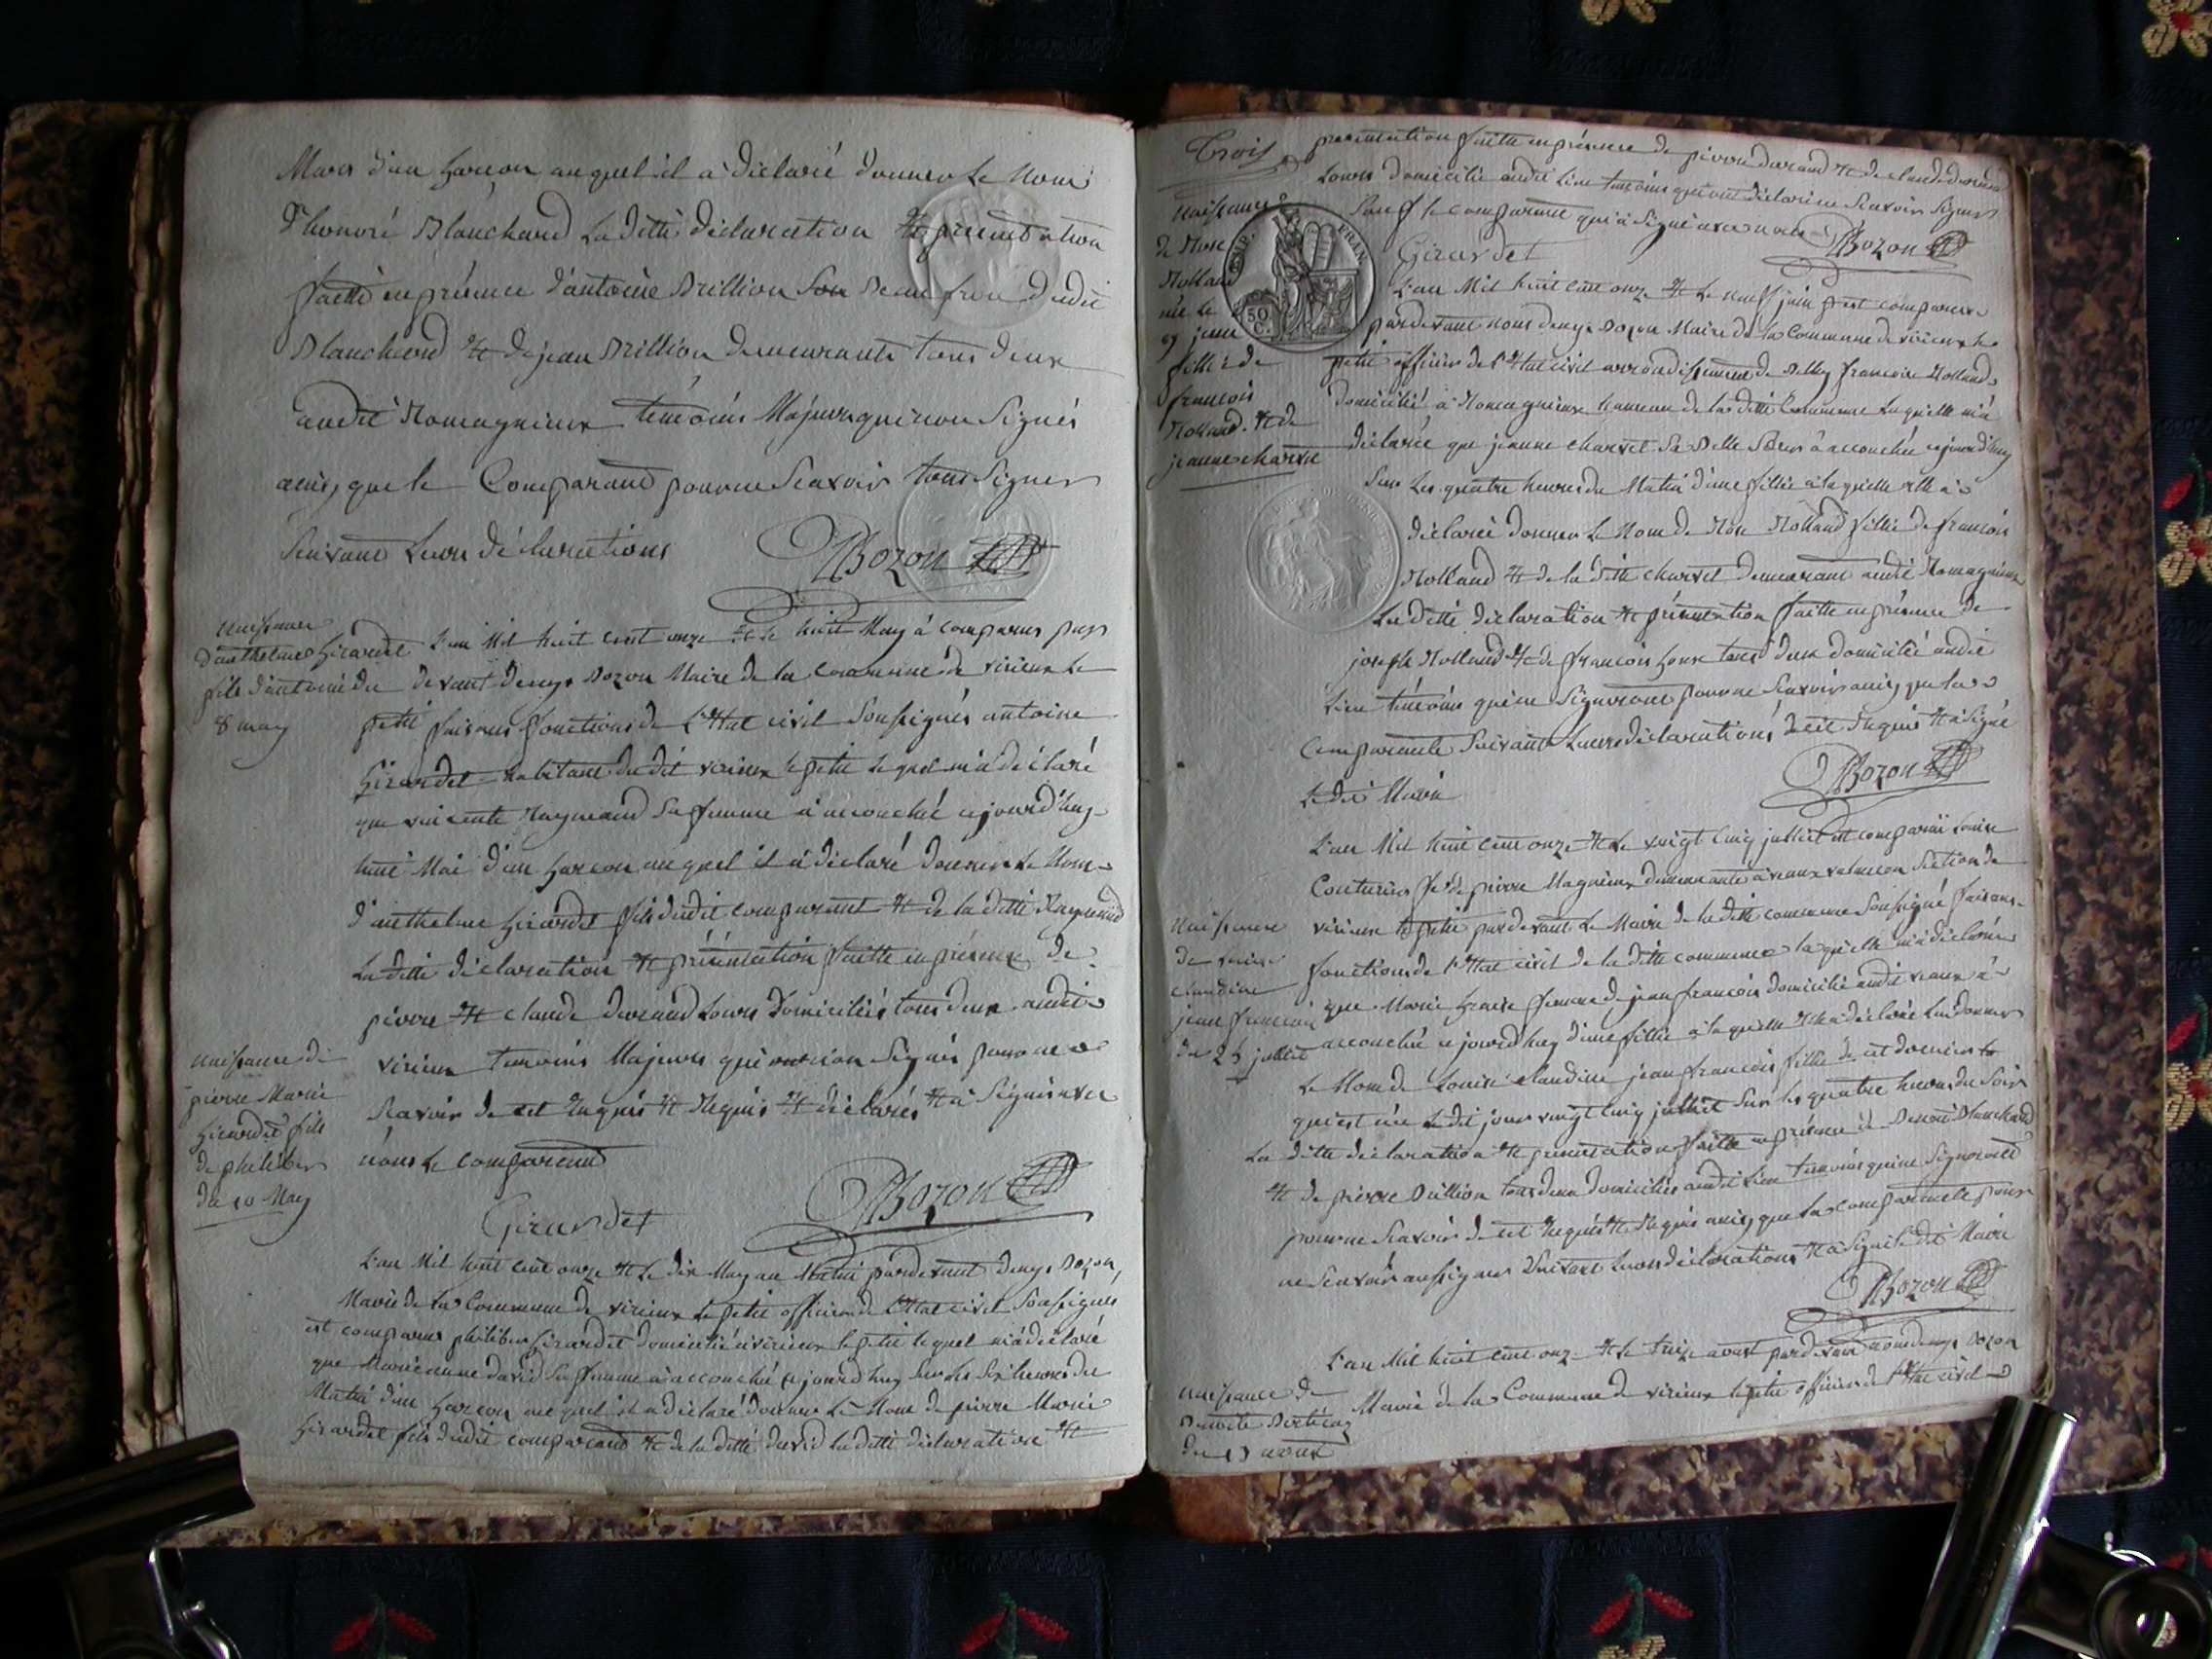 Mars d'un Garcon auquel il a déclaré donner Le Nom
d'honoré Blanchard La ditte déclaration et présentation
faitte en présence d'antoine Brillion son Beau frere dudit
Blanchard et de jean Brillion demeurants tous deux
audit Romagnieux témoins Majeurs qui non Signés
ainsy que le Comparant pour ne Scavoir tous Signer
Suivant Leurs déclarations
Bozon
naissance
d'anthelme Girardet
fils d'antoine du
8 may
L'an Mil huit cent onze et le huit May à comparus par
devant denys Bozon Maire de la Commune de virieux Le
petit faisans fonctions de L'Etat civil Soussignés antoine
Girardet habitant dudit virieux le petit Lequel m'a déclaré
que vincente Raymand Sa femme a accouché ajourd'huy
huit Mai d'un Garcon auquel il à déclaré donner Le Nom
d'anthelme Girardet fils dudit comparant et de la ditte Raymand
La ditte déclaration et présentation faitte en présence de
pierre et claude durand Louis domiciliés tous deux audit
virieux temoins Majeurs qui non Signés pour ne
Scavoir de cet Enquis et Requis et déclarés et à Signés avec
nous Le comparend
Girardet
Bozon
naissance de
pierre Marie
Girardet fils
de philiber
du 10 May
L'an Mil huit cent onze et Le dix May au Matin pardevant denys Bozon
Maire de La Commune de virieux Le petit officier de l'Etat civil Soussignés
est comparus philiber Girardet domicilié à virieux le petit lequel m'a déclaré
que Marieanne david Sa femme à accouché ajourd'huy Sur les Six heures du
Matin d'un Garcon auquel il a déclaré donner Le Nom de pierre Marie
Girardet fils dudit comparant et de la ditte david La ditte déclaration et
Trois
présentation faitte en présence de pierre durand et de claude durand
Louis domicilié audit Lieu temoins qui ont déclaré ne Scavoir Signer
Sauf le comparant qui à Signé avec nous
Girardet
Bozon
naissance
de Rose
Rolland
née le
9 juin
fille de
francois
Rolland et de
jeanne charvet
REP. FRAN.
50
C.
L'an Mil huit cent onze et Le neuf juin est comparue
pardevant nous denys Bozon Maire de La Commune de virieux Le
petit officier de l'Etat civil arrondissement de Belley francoise Rolland
domicilié à Romagnieux hameau de La ditte Commune Laquelle m'a
déclarée que jeanne charvet Sa Belle Sœur à accouchée ajourd'huy
Sur Les quatre heures du Matin d'une fille à laquelle elle à
déclarée donner Le Nom de Rose Rolland fille de francois
Rolland et de la ditte charvet demeurant audit Romagnieux
La ditte déclaration et présentation faitte en présence de
joseph Rolland et de francois tous deux domicilié audit
Lieu témoins qui ne Signeront pour ne Scavoir ainsy que la
Comparante Suivant Leurs déclarations de cet Requis et à Signé
Ledit Maire
Bozon
L'an Mil huit cent onze et Le vingt cinq juillet est comparue Louise
Couturier fe de pierre Magnieux demeurante à vaux section de
virieux le petit pardevant Le Maire de la ditte commune Soussigné faisans
fonctions de l'Etat civil de la ditte commune laquelle m'a déclarée
que Marie femme de jean francois domicilié audit vaux à
accouchée ajourd'huy d'une fille à laquelle elle a déclaré Lui donner
Le Nom de Louise claudine jean francois fille de cet dernier
qui est née Ledit jour vingt cinq juillet Sur les quatre heures du Soir
La ditte déclaration et présentation faitte en présence de Benoit Blanchard
et de pierre Brillion tous deux domicilies audit Lieu temoins qui ne Signeront
pour ne Scavoir de cet Enquis et Requis ainsy que la comparante pour
ne Scavoir aussi Signer Suivant Leurs déclarations et à Signé le dit Maire
Bozon
naissance
de Louise
claudine
jean francois
du 25 juillet
naissance de
Benoite
du 13 aoust
L'an Mil huit cent onze et Le treize aoust pardevant nous denys Bozon
Maire de la Commune de virieux le petit officier de l'Etat civil